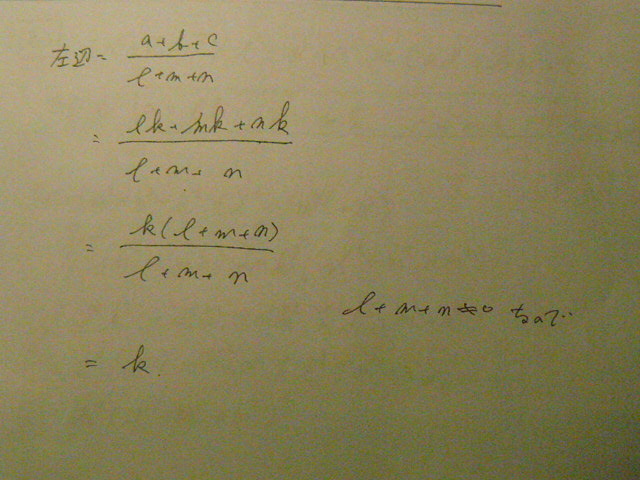 左辺 = (a+b+c)/(l+m+n)
= (lk+mk+nk)/(l+m+n)
= k(l+m+n)/(l+m+n)
l+m+n≠0 なので
= k